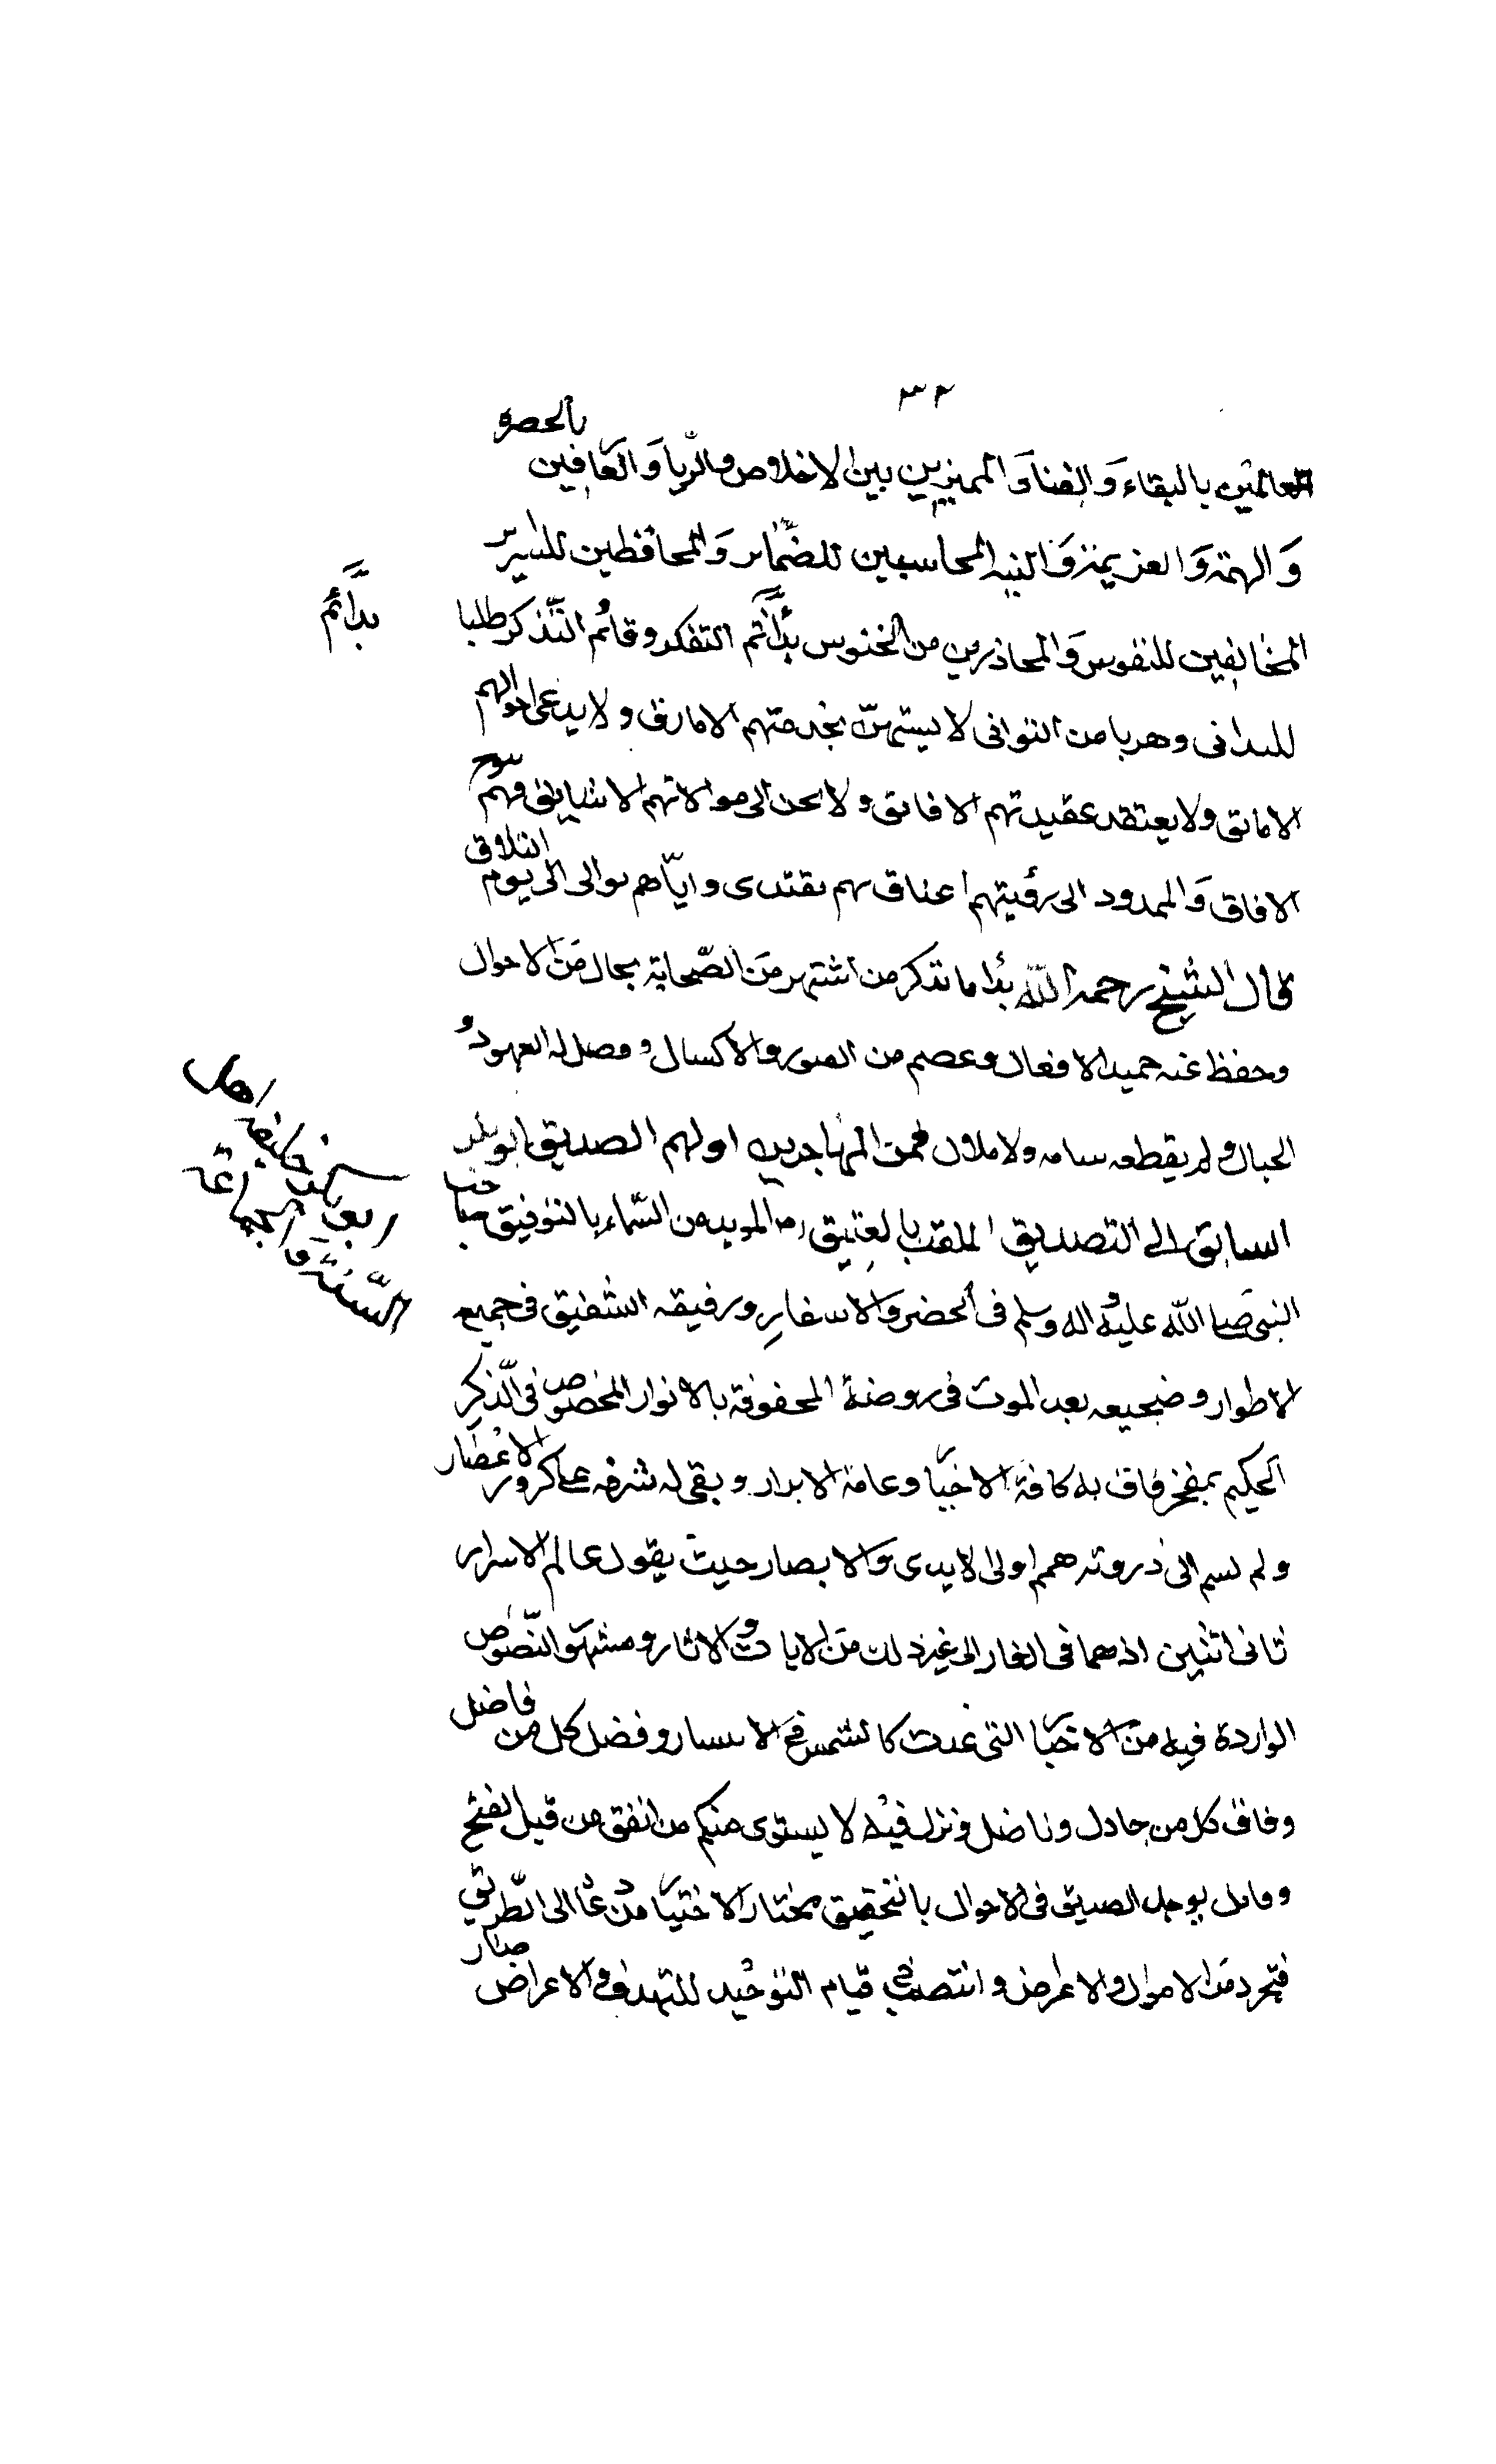 ٣٢
العالمين بالبقاء وَالفنا وَالمميزين بين الاخلاص والرّيا وَالعارفين بالخطرة
وَالهمّة وَالعزيمة وَالنيه المحاسبين للضّمائر وَالمحافظين للسراير
المخالفين للنفوس وَالمحاذرين من الخنوس بدائم التفكر وقائم التّذكر طلبا
بدَائم
للتدانى وهربا من التوانى لا يستهين بخدمتهم الا مارق ولا يدعى احوالهم
الا مائق ولا يعتقد عقيدتهم الا فائق ولا يحن الى موالاتهم الا شايق فهم سرج
الافاق وَالممدود الى رؤيتهم اعناق بهم نقتدى وايّاهم نوالى الى يوم التلاق
قال الشيخ رحمه اللّه بدا ما نذكر من اشتهر من الصّحابة بحال من الاحوال
وحفظ عنه حميد الافعال وعصم من الفتور والاكسال وفصل له العهود و
الحبال ولم يقطعه سامه ولا ملال فمن المهاجرين اولهم الصديق ابو بكر
السابق الى التصديق الملقب بالعتيق رض المويد من السّماء بالتوفيق صاحب
النبى صلى اللّه عليه واله وسلم فى الحضر والاسفار ورفيقه الشفيق فى جميع
الاطوار وضجيعه بعد الموت فى روضة المحفوفة بالانوار المخصوص فى الذّكر
الحكيم بمفخر فاق به كافة الاخيار وعامة الابرار وبقى له شرفه على كرور الاعصار
ولم يسم الى ذروته همم اولى الايدى والابصار حيث يقول عالم الاسرار
ثانى اثنين اذ هما فى الغار الى غير ذلك من الايات والاثار ومشهور النّصوص
الواردة فيه من الاخبار التى غدت كالشمس فى الانتشار وفضل كل من فاضل
وفاق كل من جادل وناضل ونزل فيه لا يستوى منكم من انفق من قبل الفتح
وقاتل توحل الصديق فى الاحوال بالتحقيق مختار الاختيار من دعا الى الطّريق
فتجرد من الاموال والاعراض وانتصب فى قيام التوحيد للتهدف والاعراض صار
السّنّة والجماعة